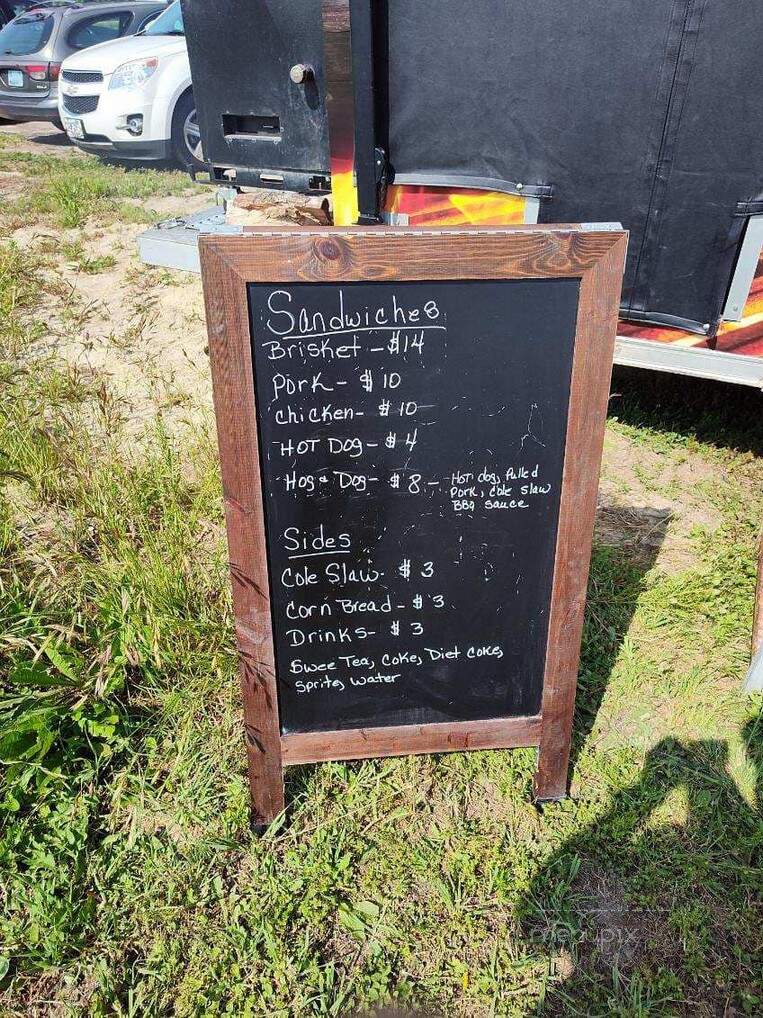 Sandwiches
Brisket - $14
Pork - $10
Chicken - $10
HOT Dog - $4
Hog + Dog - $8 - Hot dog, Pulled
Pork, Cole slaw
BBQ sauce
Sides
Cole Slaw - $3
Corn Bread - $3
Drinks - $3
Swee Tea, Coke, Diet Coke,
Sprite, water